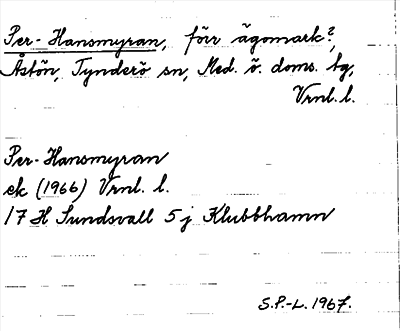 Per-Hansmyran, förr ägomark?,
Åstön, Tynderö sn, Med. ö. doms. tg,
Vrnl. l.
Per-Hansmyran
ek (1966) Vrnl. l.
17 H Sundsvall 5 j Klubbhamn
S.P.-L. 1967.